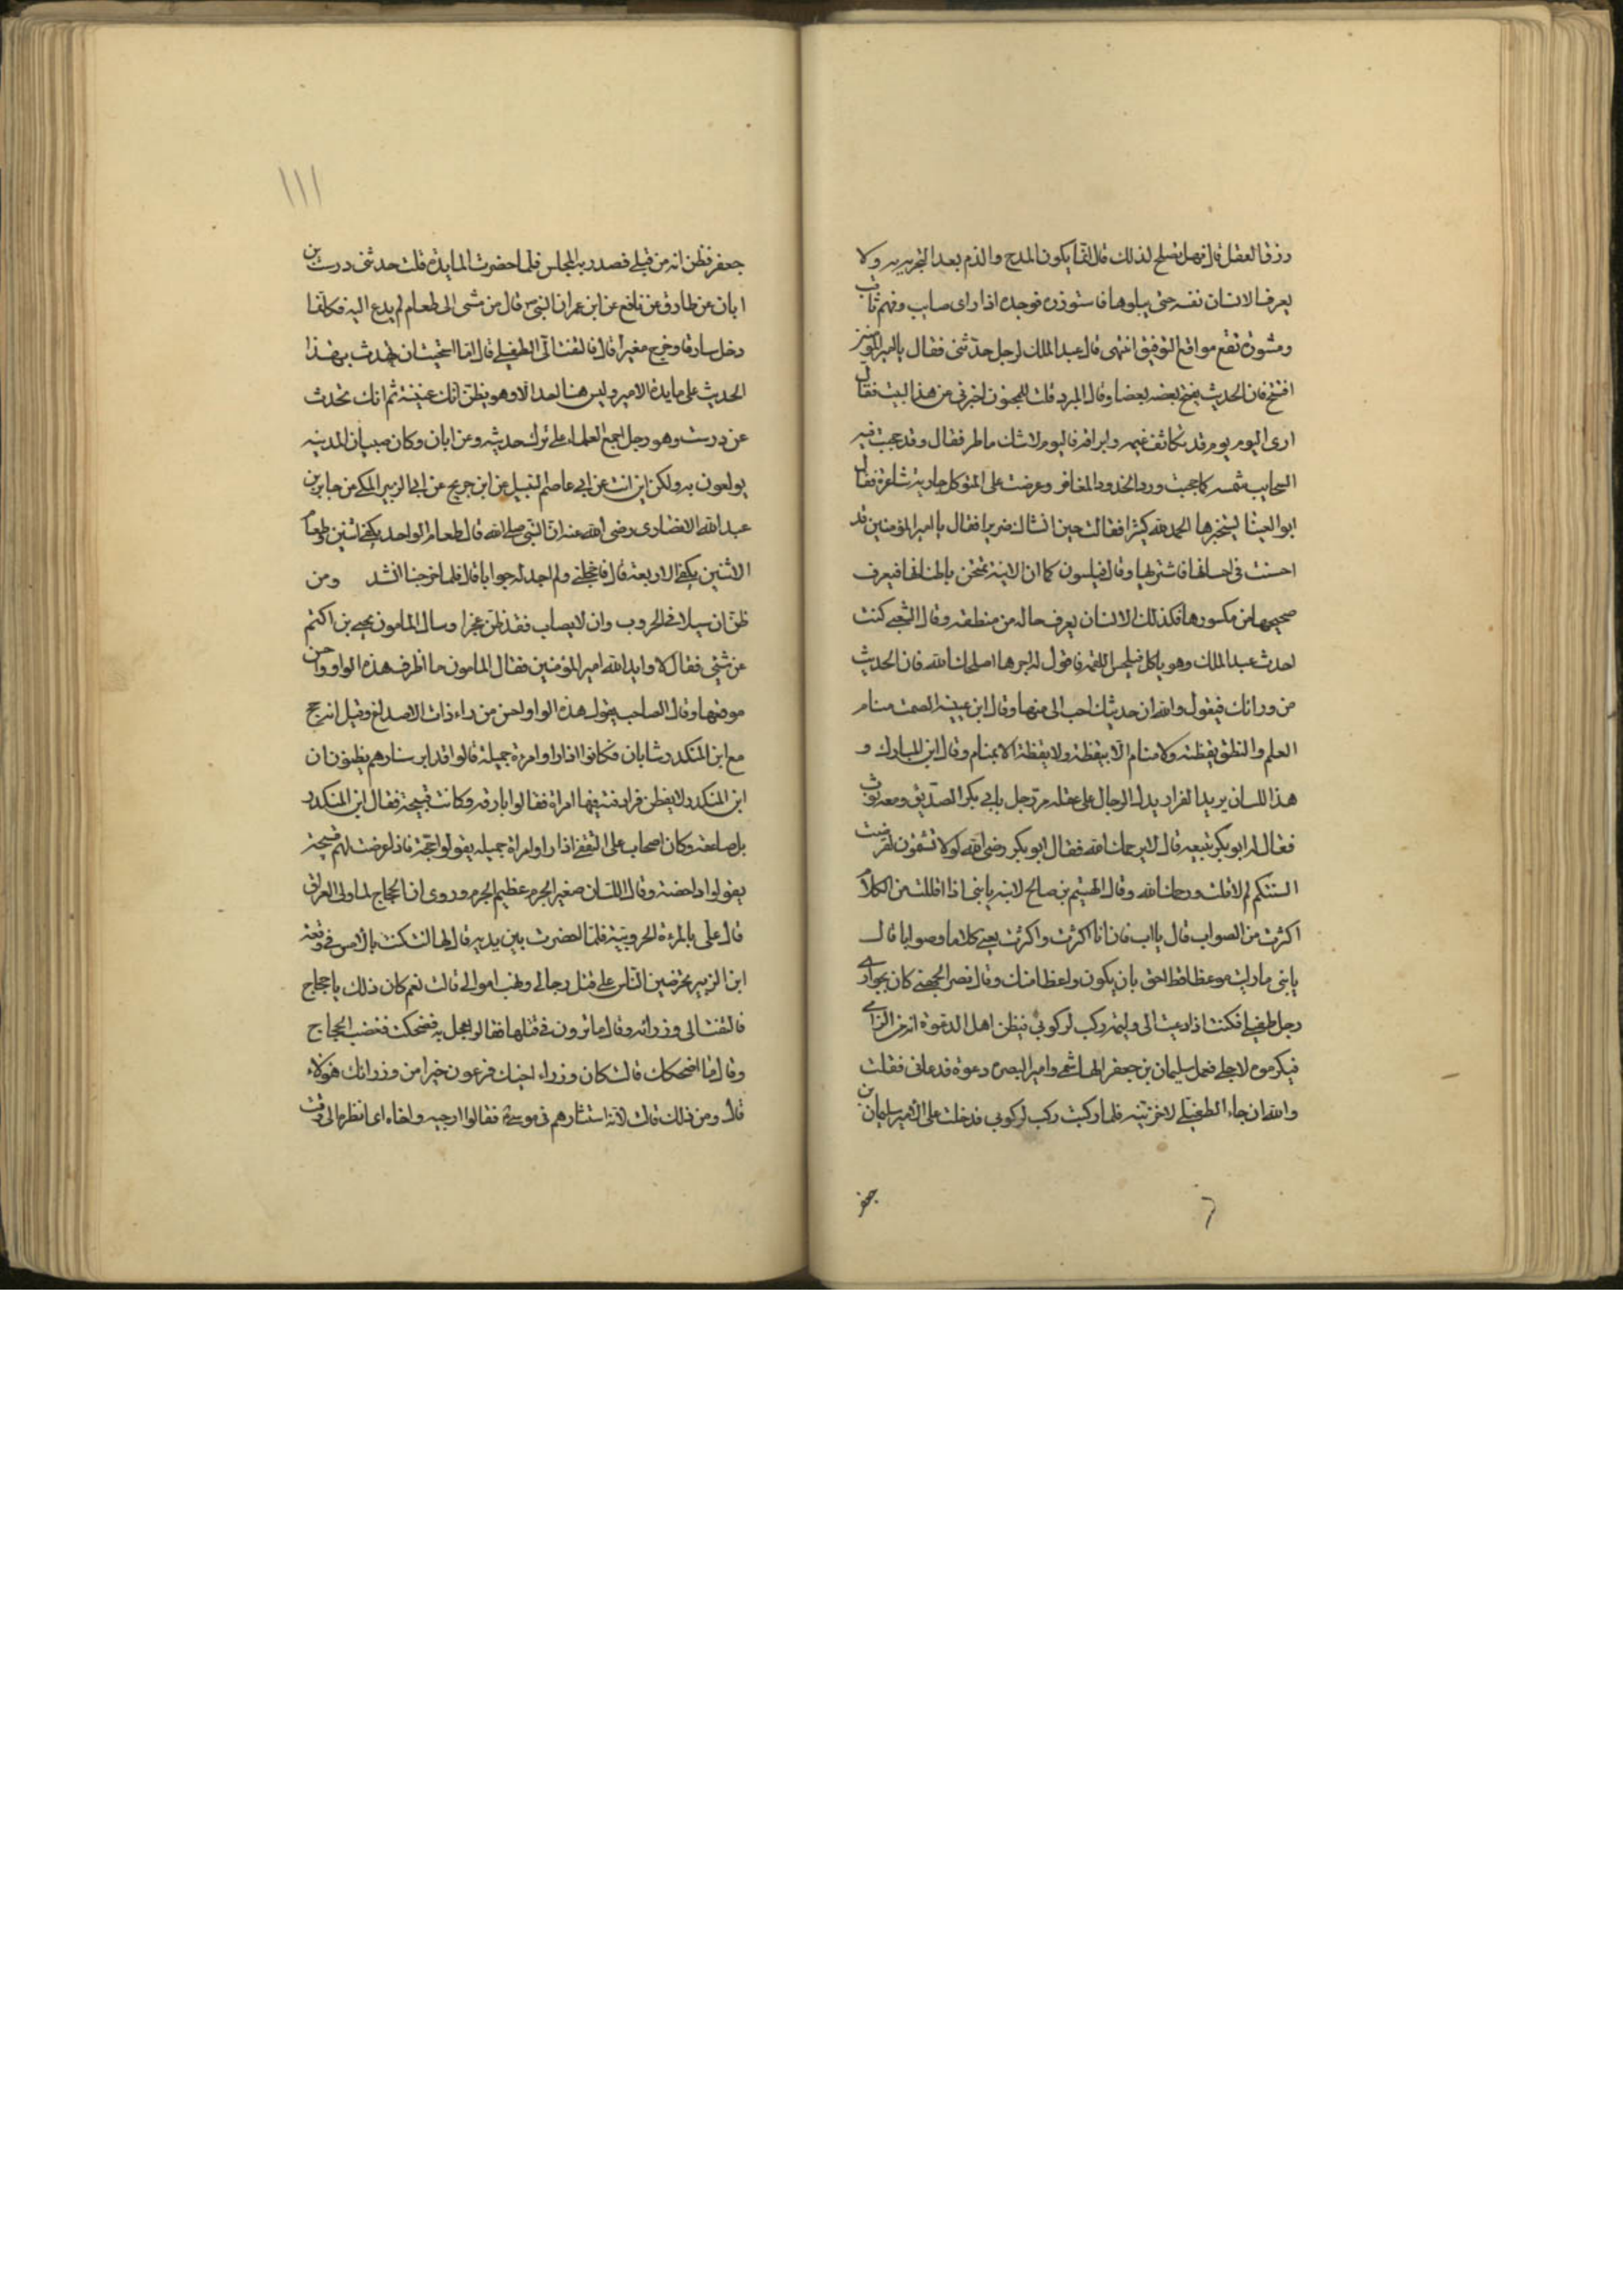 رزق العقل قال فهل يصلح لذلك قال انما يكون المدح والذم بعد التجربه ولا
يعرف الانسان نفسه حتى يبلوها فاستوزره فوجده اذا راى صايب وفهم ثاقب
ومشورة تقع مواقع التوفيق انتهى قال عبد الملك لرجل حدثنى فقال يا امير المومنين
افتتح فان الحديث يفتح بعضه بعضا وقال المبرد قلت للمجنون اجزنى من هذا البيت فقال
ارى اليوم يوم قد تكاثف غيمه وابراقه فاليوم لا شك ماطر فقال وقد حجبت فيه
السحايب شمسه كما حجبت ورد الخدود المغافر وعرضت على المتوكل جارية شاعرة فقال
ابو العينا ليستخبرها الحمد لله كثيرا فقالت حين انشاك ضريرا فقال يا امير المؤمنين قد
احسنت فى احسانها فاشتريها وقال فيلسوف كما ان الانية تمتحن باطنانها فيعرف
صحيحها من مكسورها فكذلك الانسان يعرف حاله من منطقه وقال الشعبى كنت
احدث عبد الملك وهو ياكل فيحبس اللقمة فاقول له اجرها اصلحك الله فان الحديث
من ورائك فيقول والله ان حديثك احب الى منها وقال ابن عيينه الصمت منام
العلم والنطق يقظته ولا منام الا بيقظة ولا يقظة الا بمنام وقال ابن المبارك و
هذا اللسان بريد الفواد يدل الرجال على عقله مر رجل بابى بكر الصديق ومعه ثوب
فقال له ابو بكر تبيعه قال لا يرحمك الله فقال ابو بكر رضى الله لو كا تشقون لقومت
السنتكم لم لا قلت ورحمك الله وقال الهيثم بن صالح لابنه يا بنى اذا اقللت من الكلام
اكثرت من الصواب قال يا اب فان انا اكثرت واكثرت يعنى كلاما وصوابا قال
يا بنى ما رايت موعظا قط احق بان يكون واعظا منك وقال نصر الجهضمى كان بجوارى
رجل طفيلى فكنت اذا دعيت الى وليمة ركب لركوبى فيظن اهل الدعوة انه من اتراى
فيكرموه لاجلى فعمل سليمان بن جعفر الهاشمى وامير البصره دعوة فدعانى فقلت
والله ان جاء الطفيلى لاخزينه فلما ركبت ركب لركوبى فدخلت على الامير سليمان بن
جعفر
١١١
جعفر فظن انه من قبلى فصدر به المجلس فلما حضرت المايدة قلت حدثنى درست بن
ابان عن طارق عن نافع عن ابن عمر ان النبى ص قال من مشى الى طعام لم يدع اليه فكانما
دخل سارقا وخرج مغيرا قال فالتفت الى الطفيلى قال اما استحيت ان تحدث بهذا
الحديث على مايدة الامير وليس هنا احدا الا وهو يظن انك عنيته ثم انك تحدث
عن درست وهو رجل اجمع العلماء على ترك حديثه وعن ابان وكان صبيان المدينه
يولعون به ولكن اين انت عن ابى عاصم النبيل عن ابن جريج عن ابى الزبير المكى عن جابر بن
عبد الله الانصارى رضى الله عنه ان النبى صلى الله قال طعام الواحد يكفى اثنين وطعام
الاثنين يكفى الاربعة قال فاخجلنى ولم اجد له جوابا قال فلما خرجنا انشد ومن
ظن ان سيلاقى الحروب وان لا يصاب فقد ظن عجزا وسال المامون يحيى بن اكثم
عن شئ فقال لا وايد الله امير المؤمنين فقال المامون ما اظرف هذه الواو واحسن
موضعها وقال الصاحب يقول هذه الواو احسن من راء ذات الاصداغ وقيل انه حج
مع ابن المنكدر شابان فكانوا اذا راوا امرءة جميلة قالوا قد ابرسنا وهم يظنون ان
ابن المنكدر لا يفطن فراد قبة فيها امراة فقالوا بارقه وكانت قبيحة فقال ابن المنكدر
بل صاعقة وكان اصحاب على الثقفى اذا راوا امراة جميله يقولوا حجة فاذا عرضت لهم قبيحة
يقولوا داحضة وقال اللسان صغير الجرم عظيم الجرم وروى ان الحجاج لما ولى العراق
قال على بالمرءة الحرورية فلما احضرت بين يديه قال لها انت كنت بالامس فى وقعة
ابن الزبير تحرضين الناس على قتل رجالى ونهب اموالى قالت نعم كان ذلك يا حجاج
فالتفت الى وزرائه وقال ما ترون فى قتلها فقالوا عجل به فضحكت فغضب الحجاج
وقال ما اضحكك قالت كان وزراء اخيك فرعون خيرا من وزرائك هولاء
قال ومن ذلك قالت لانه استشارهم فى موسى فقالوا ارجيه واخاه اى انظره الى وقت